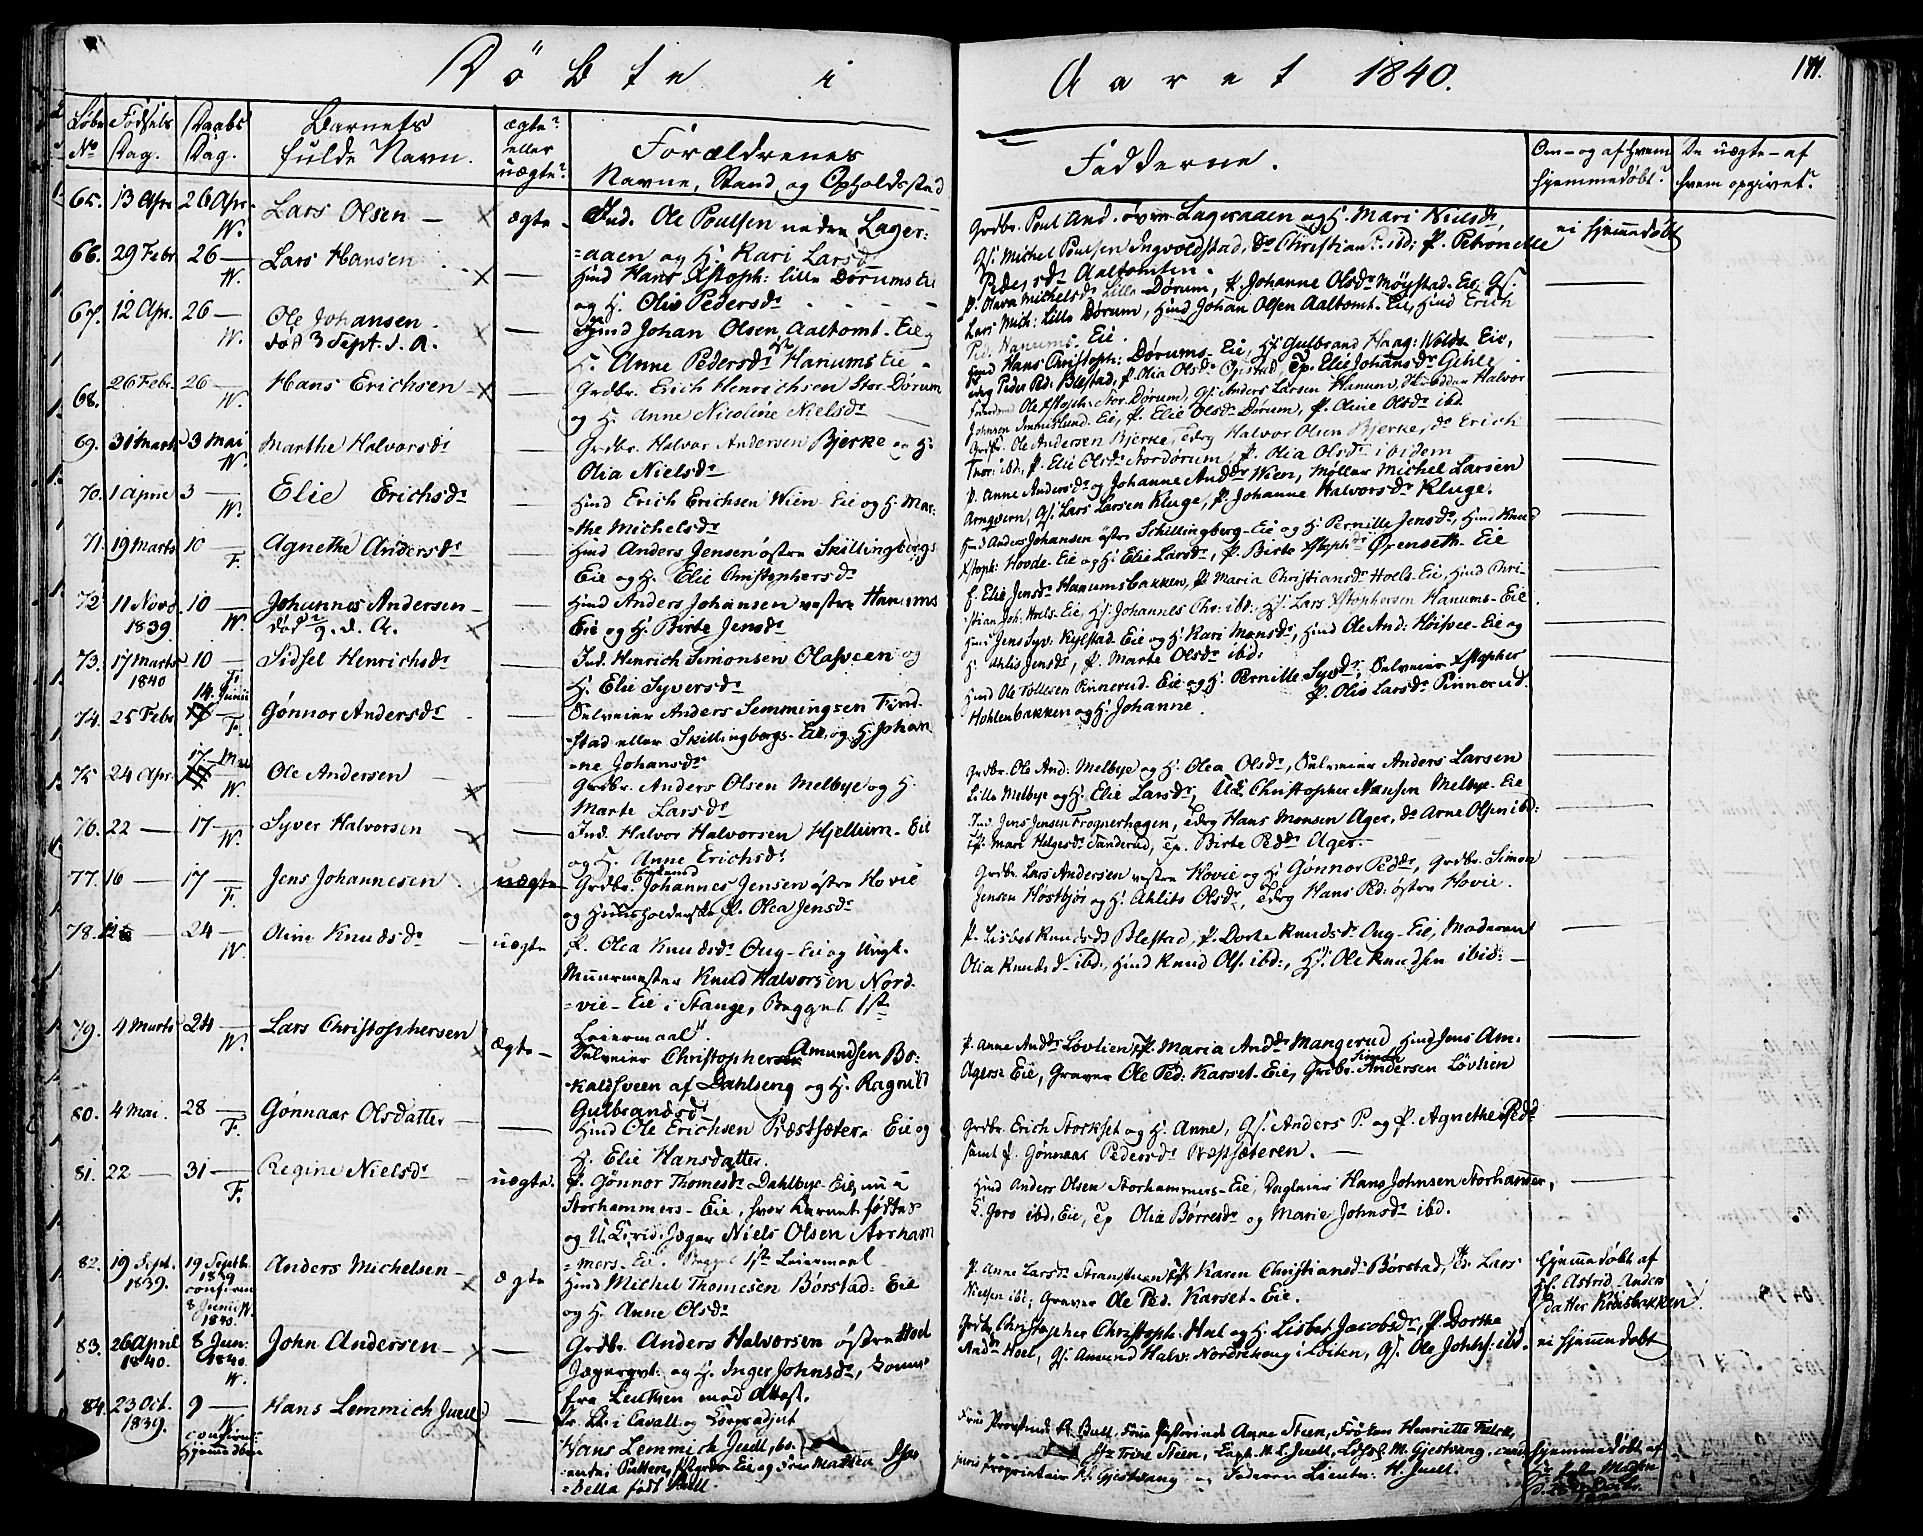 Døbte i Aaret 1840.
171.
Løbe No
Fødsels Dag.
Daabs Dag.
Barnets fulde Navn.
ægte? eller uægte?
Forældrenes Navne, Stand og Opholdssted
Fadderne.
Om- og af hvem hjemmedøbt?
De uægte - af hvem opgivet?
65. 13 Apr. 26 Apr. W. Lars Olsen ægte Ind. Ole Poulsen nedre Lager:
=aaen og H. Kari Larsdr
Grdbr. Poul And. øvre Lageraaen og H. Mari Nielsdr,
Gs. Michel Poulsen Ingvoldstad, Do Christian P. ibd; P. Petronelle
Pedersdr Aaltomten.
ei hjemmedøbt
66. 29 Febr. 26 W. Lars Hansen
Hmd Hans Xstoph: lille Dørums Eie
og H. Olie Pedersdr
P. Olava Michelsdr Lille Dørum, P. Johanne Olsdr Møystad-Eie, Gs.
Lars Mich: Lille Dørum, Hmd Johan Olsen Aaltomt-Eie, Hmd Erich
Ped. Hanums-Eie.
67. 12 Apr. 26 W. Ole Johansen
død 3 Sept. s. A.
Hmd Johan Olsen Aaltomt-Eie
H. Anne Pedersdr Hanums Eie
Hmd Hans Christoph: Dørums-Eie, Hs. Gulbrand Haag: Wolds-Eie,
Edrg Peder Ped: Blestad, P. Olia Olsdr Opstad, Tp. Elie Johansdr Gehle
68. 26 Febr. 26 W. Hans Erichsen
Grdbr. Erich Henrichsen Stor-Dørum
og H. Anne Nicoline Nielsdr
Ole Xstoph: Nor Dørum, Gs. Anders Larsen Hanum, Halvor
Johnsen Eie, P. Elie Olsdr Dørum, P. Oline Olsdr ibd.
69. 31 Marts 3 Mai W. Marthe Halvorsdr
Grdbr. Halvor Andersen Bjerke og H:
Olia Nielsdr
Grdbr. Ole Andersen Bjerke, Edrg Halvor Olsen Bjerke, do Erich
Thor: ibd., P. Elie Olsdr Stordørum, P. Olia Olsdr ibidem
70. 1 Apr 3 W. Elie Erichsdr
Hmd Erich Erichsen Wien Eie og H. Mar:
=the Michelsdr
P. Anne Andersdr og Johanne Andr Wien, Møller Michel Larsen
Arnqvern, Gs. Lars Larsen Kluge, P. Johanne Halvorsdr Kluge.
71. 19 Marts 10 F. Agnethe Andersdr
Hmd Anders Jensen østre Skillingbergs
Eie og H. Elie Christophersdr
Hmd Anders Johansen østre Schillingberg-Eie og H. Pernille Jensdr, Hmd Knud
Xstoph: Hovde-Eie og H. Elie Larsdr, P. Birte Xstophdr Ørenseth-Eie
72 11 Novb 1839 10 W. Johannes Andersen
død 2/9. s. A.
Hmd Anders Johansen vestre Hanums
Eie og H. Birte Jensdr
P. Elie Jensdr Hanumsbakken, P. Maria Christiansdr Hoels-Eie, Hmd Chri-
stian Joh. Hoels-Eie, Hs. Johannes Chr: ibd:, Hs. Lars Xstophersen Hanums-Eie
73. 17 Marts 1840 10 F. Sidsel Henrichsdr
Ind. Henrich Simonsen Olasveen og
H. Elie Syversdr
Hmd Jens Syv: Kylstad-Eie og H. Kari Monsdr, Hmd Ole And: Hoisvee-Eie og
H. Ahlis Jensdr, P. Marte Olsdr ibd:
74. 25 Febr. 14. Junii F. Gønnor Andersdr
Selveier Anders Semmingsen Find-
=stad eller Skillingbergs-Eie, og H. Johan
=ne Johansdr
Hmd Ole Tollefsen Pinnerud-Eie og H. Pernille Syvdr, Selveier Xstopher
Hohlenbakken og H. Johanne. P. Olis Larsdr Pinnerud.
75 24 Apr. 17. Mai W. Ole Andersen
Grdbr. Anders Olsen Melbye og H.
Marte Larsdr
Grdbr. Ole And: Melbye og H. Olea Olsdr, Selveier Anders Larsen
Lille Melbye og H. Elie Larsdr, Christopher Hansen Melbye-Eie
76. 22 17 W. Syver Halvorsen
Ind. Halvor Halvorsen Hjellum-Eie
og H. Anne Erichsdr
Ind. Jens Jensen Frognerhagen, Edrg Hans Monsen Ager, do Arne Olsen ibd:
P. Mari Helgesdr Sanderud, Tp. Birte Peddr Ager.
77. 16 17 F. Jens Johannesen uægte
Grdbr. Enkemand Johannes Jensen østre Hovie
og Huusholderske P. Olea Jensdr
Grdbr. Lars Andersen vestre Hovie og H. Gønnor Peddr, Grdbr. Simon
Jensen Hostbjør og H. Ahlite Olsdr, Edrg Hans Ped: østre Hovie.
78. 12 24 W. Oline Knudsdr uægte
P. Olea Knudsdr Oug-Eie og Ungk.
Muurmester Knud Halvorsen Nord-
=vie-Eie i Stange, Begges 1ste
Leiermaal.
P. Lisbet Knudsdr Blestad, P. Dorte Knudsdr Oug-Eie, Moderen
Olia Knudsdr ibd:, Hmd Knud Ols. ibd:, Hs. Ole Knudsen ibid:
79. 4 Marts 24 W. Lars Christophersen ægte
Selveier Christopher Amundsen Bo:
=kaldsveen af Dahlseng og H. Ragnild
Gulbrandsdr
P. Anne Anddr Løvlien, P. Maria Anddr Mangerud, Hmd Jens Am.
Agers Eie, Graver Ole Ped: Karset-Eie, Grdbr. Simon Andersen Løvlien
80. 4 Mai. 28 F. Gønnaar Olsdatter
Hmd Ole Erichsen Præstsæter Eie og
H. Elie Hansdatter.
Grdbr. Erich Storkset og H. Anne, Gs. Anders P. og P. Agnethe Peddr
samt P. Gønnaar Pedersdr Præstsæteren.
81. 22 31 F. Regine Nielsdr uægte.
P. Gønnor Thomesdr Dahlbye-Eie, nu i
Storhammers-Eie, hvor Barnet fødtes
og U. Jæger Niels Olsen Storham
=mers-Eie. Begges 1ste Leiermaal
Hmd Anders Olsen Storhammers-Eie, Dagleier Hans Johnsen Storhammer,
K. Goro ibd. Eie, Tp Olia Børresdr og Marie Johnsdr ibd.
82. 19 Sept. 1839. 19 Septb. 1839 confirm 8 Junii W. 1840. Anders Michelsen ægte
Hmd Michel Thomesen Børstad-Eie
og H. Anne Olsdr
P. Anne Larsdr Stranstuen, P. Karen Christiansdr Børstad, Lars
Nielsen ibd:, Graver Ole Ped. Karset-Eie.
hjemmedøbt af
Astrid Anders
datter Kriisbakken.
83. 26 April 1840. 8 Jun: 1840. W. John Andersen
Grdbr. Anders Halvorsen østre Hoel
Jægergvt: og H. Inger Johnsdr, kommer
fra Leuthen med Attest.
Grdbr. Christopher Christoph: Hoel og H. Lisbet Jacobsdr, P. Dorthe
Anddr Hoel, Gs. Amund Halv: Nordrehoug i Løiten, Gs. Ole Johs: ibd.
ei hjemmedøbt
84. 23 Oct. 1839. 9 W. confirm: Hjemmedøbt Hans Lemmich Juell
Pr. Lt. i Cavall. og Corpsadjut
Hans Lemmich Juell, bo-
ende i Putten, Eie og Frue Mathea Isa
=bella født Juell.
Frue Provstinde A. Bull, Frue Pastorinde Anne Steen, Frøken Henriette
Trine Steen, Capt. H. L. Juell, M. Gjestvang, cand.
juris Proprietair H. Gjestvang, og Faderen Lieutn: H. Juell.
hjemmedøbt af